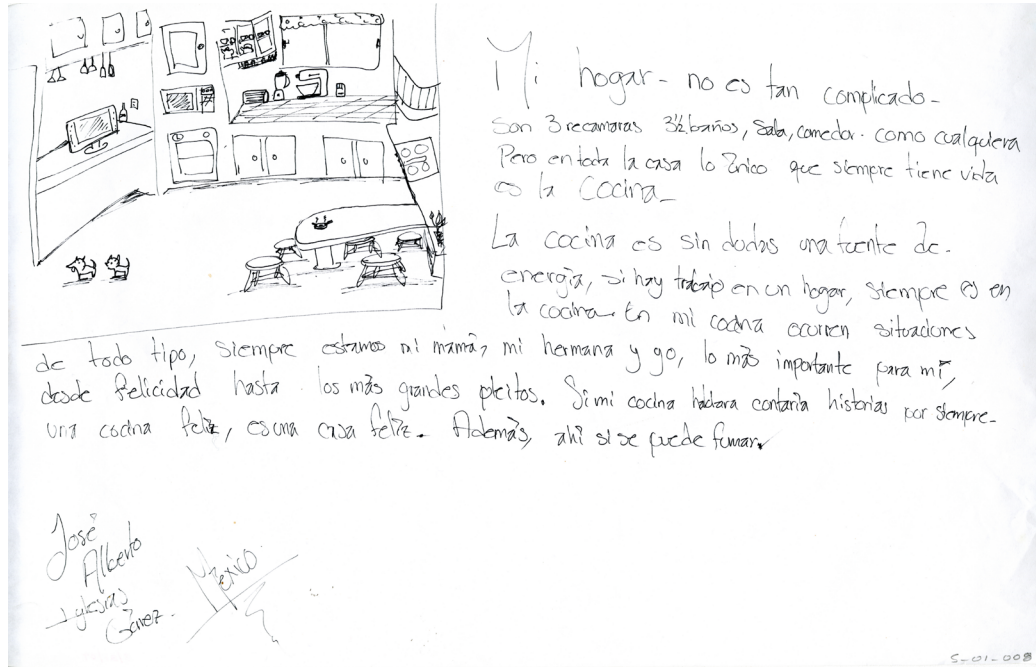 Mi hogar - no es tan complicado -
son 3 recamaras 3½ baños, sala, comedor. como cualquiera
Pero en toda la casa lo único que siempre tiene vida
es la Cocina_
La cocina es sin dudas una fuente de-
energía, si hay trabajo en un hogar, siempre es en
la cocina. En mi cocina ocurren situaciones
de todo tipo, siempre estamos mi mamá, mi hermana y yo, lo más importante para mí,
desde felicidad hasta los más grandes pleitos. Si mi cocina hablara contaría historias por siempre-
una cocina feliz, es una casa feliz. Además, ahi si se puede fumar.
José
Alberto
Iglesias
México
S-01-008